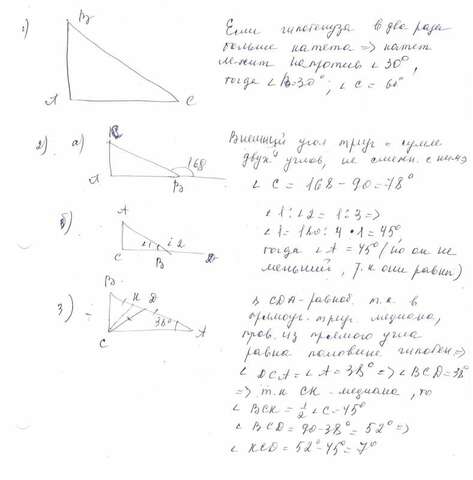 1) B
A C
Если гипотенуза в два раза
больше катета => катет
лежит напротив ∠30°,
тогда ∠B=30°; ∠C=60°
2) а) C
A B 168
Внешний угол треуг = сумме
двух углов, не смежн. с ним =>
∠C = 168 - 90 = 78°
б) A
C 1 2 B D
∠1:∠2 = 1:3 =>
∠1 = 180:4·1 = 45°
тогда ∠A = 45° (но он не
меньший, т.к они равны)
3) B K D
C 38° A
CDA - равноб. т.к в
прямоуг. треуг. медиана,
пров. из прямого угла
равна половине гипотен =>
∠DCA = ∠A = 38° => ∠BCD = 38°
=> т.к CK - медиана, то
∠BCK = 1/2 ∠C = 45°
∠BCD = 90 - 38° = 52° =>
∠KCD = 52° - 45° = 7°